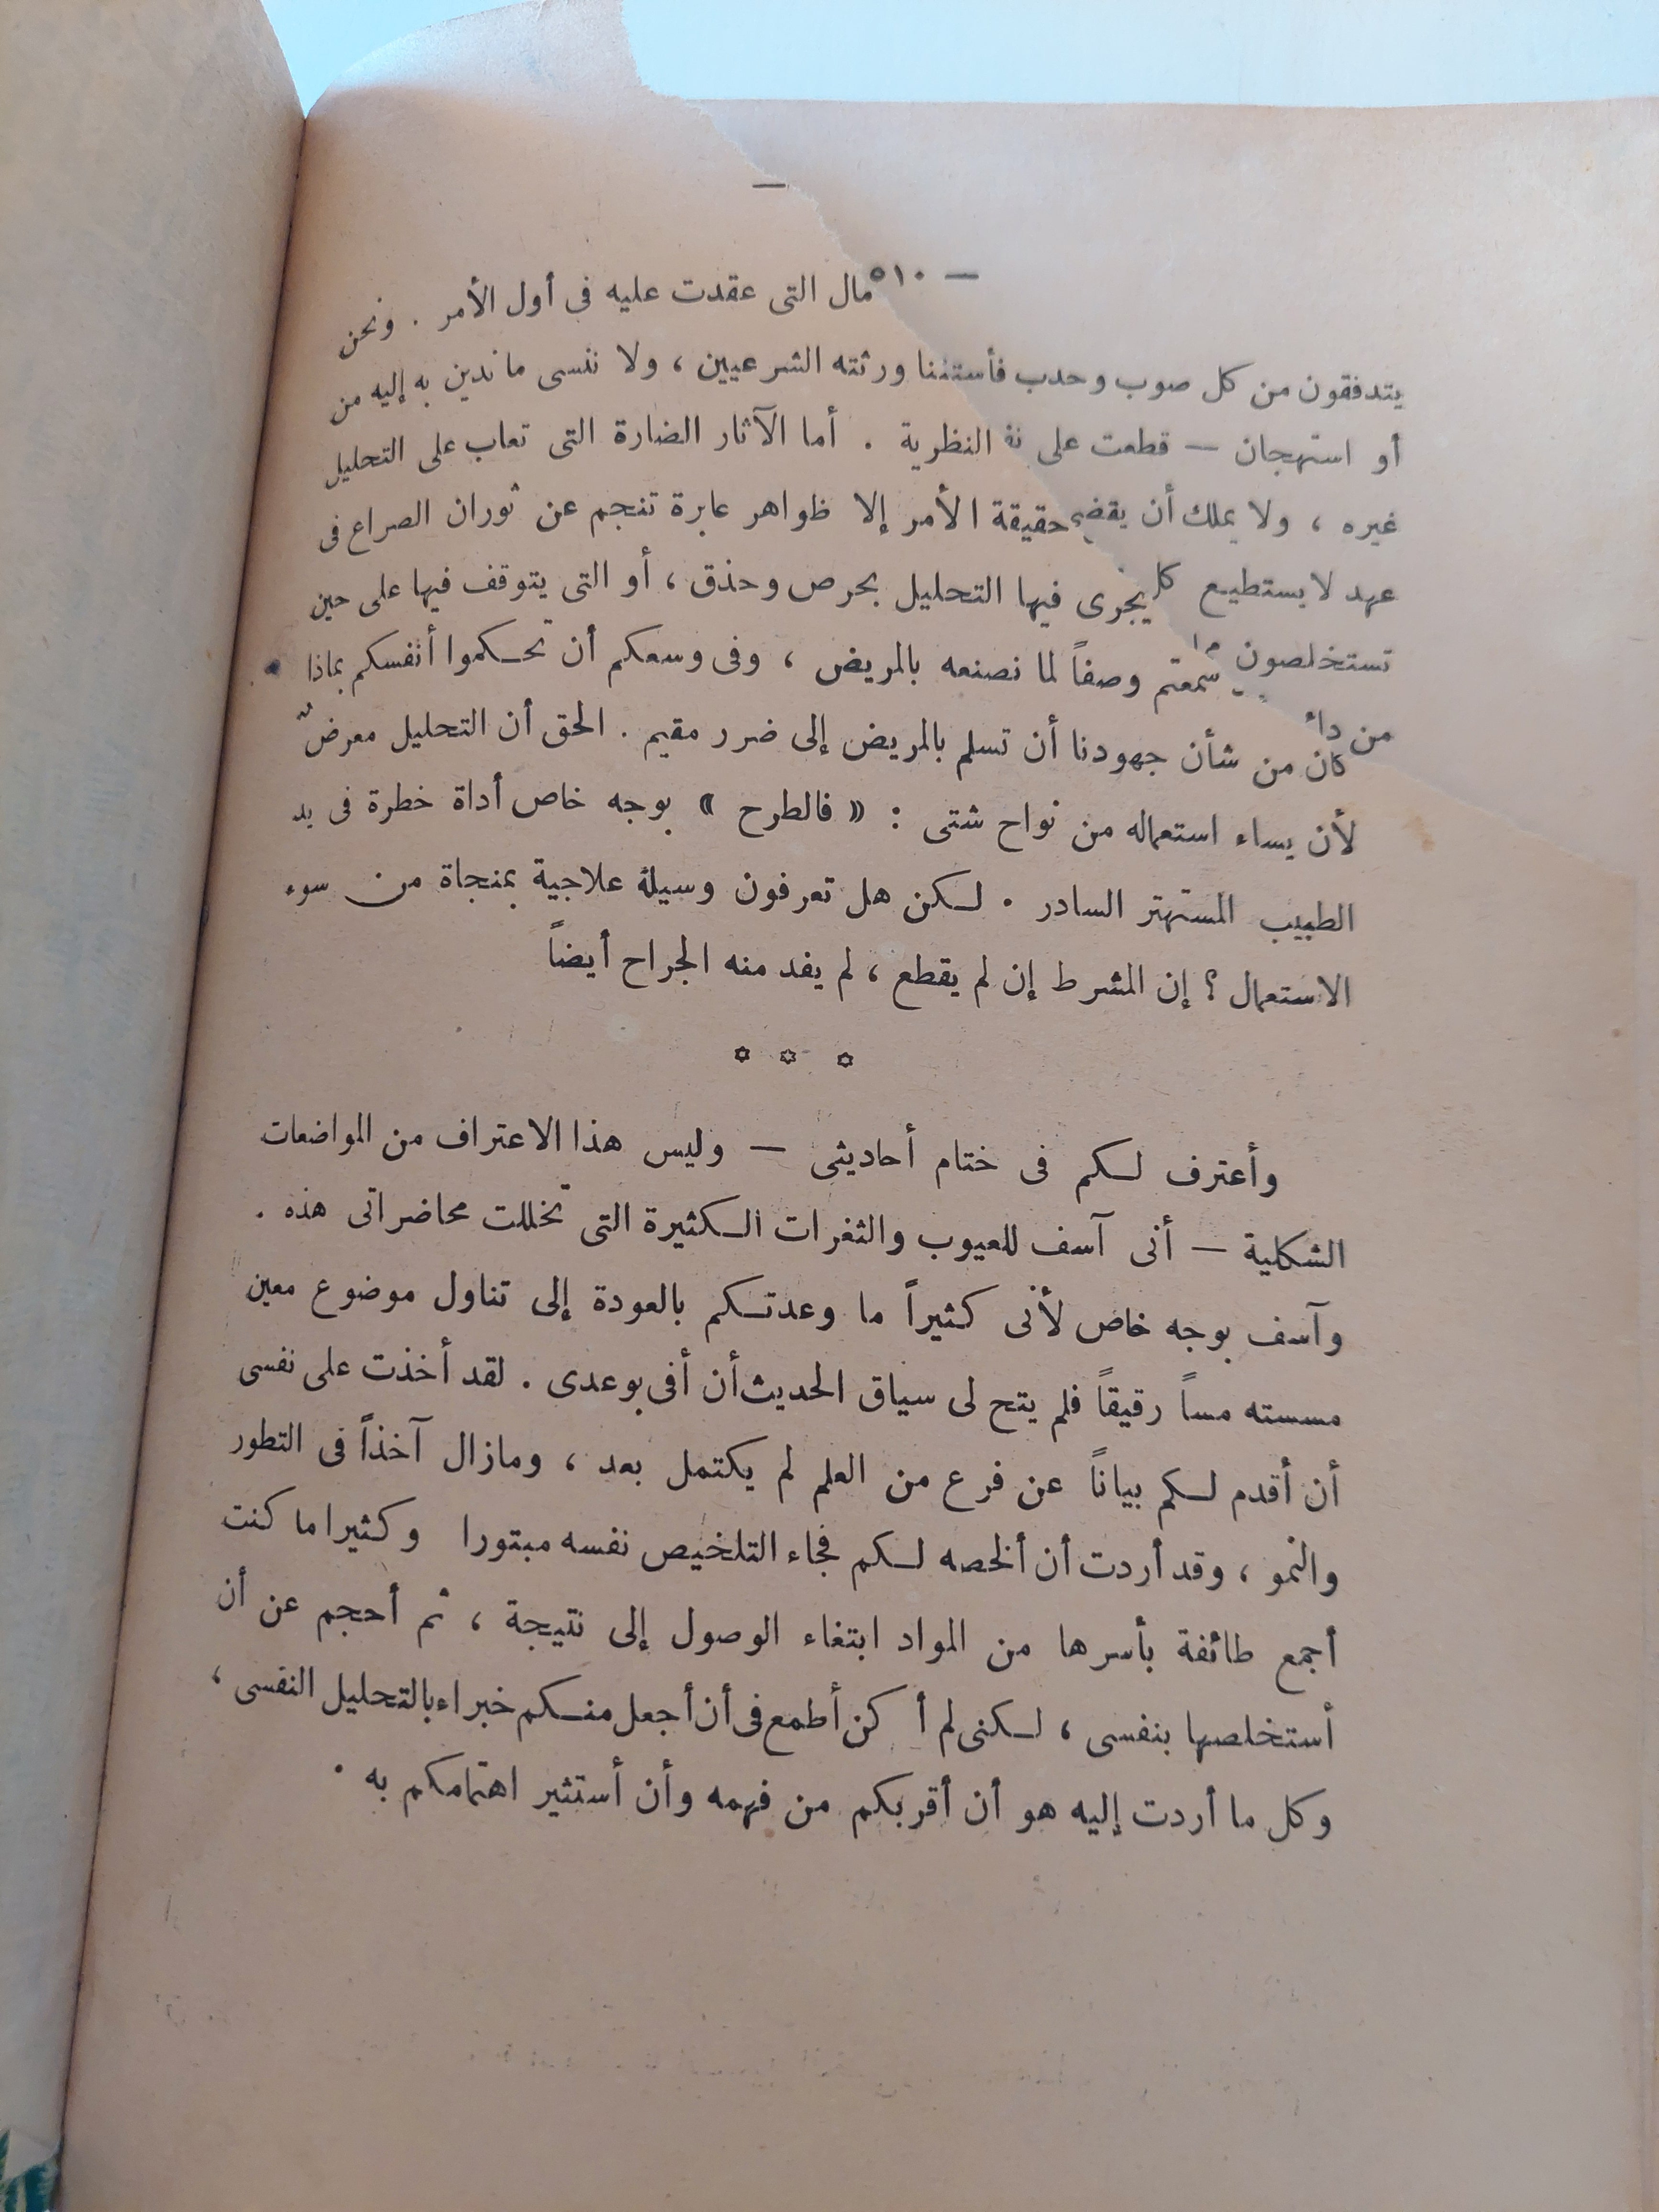 —
— ٥١٠
مال التى عقدت عليه فى أول الأمر . ونحن
يتدفقون من كل صوب وحدب ورثته الشرعيين ، ولا ننسى ما ندين به إليه من
أو استهجان — قطعت على نف النظرية . أما الآثار الضارة التى تعاب على التحليل
غيره ، ولا يملك أن يقضى حقيقة الأمر إلا ظواهر عابرة تنجم عن ثوران الصراع فى
عهد لا يستطيع كل يجرى فيها التحليل بحرص وحذق ، أو التى يتوقف فيها على حين
تستخلصون سمعتم وصفاً لما نصنعه بالمريض ، وفى وسعكم أن تحكموا أنفسكم بماذا
من دائ
كان من شأن جهودنا أن تسلم بالمريض إلى ضرر مقيم . الحق أن التحليل معرضٌ
لأن يساء استعماله من نواح شتى : « فالطرح » بوجه خاص أداة خطرة فى يد
الطبيب المستهتر السادر . لكن هل تعرفون وسيلة علاجية بمنجاة من سوء
الاستعمال ؟ إن المشرط إن لم يقطع ، لم يفد منه الجراح أيضاً
✡ ✡ ✡
وأعترف لكم فى ختام أحاديثى — وليس هذا الاعتراف من المواضعات
الشكلية — أنى آسف للعيوب والثغرات الكثيرة التى تخللت محاضراتى هذه .
وآسف بوجه خاص لأنى كثيراً ما وعدتكم بالعودة إلى تناول موضوع معين
مسسته مساً رقيقاً فلم يتح لى سياق الحديث أن أفى بوعدى . لقد أخذت على نفسى
أن أقدم لكم بياناً عن فرع من العلم لم يكتمل بعد ، ومازال آخذاً فى التطور
والنمو ، وقد أردت أن ألخصه لكم فجاء التلخيص نفسه مبتورا وكثيرا ما كنت
أجمع طائفة بأسرها من المواد ابتغاء الوصول إلى نتيجة ، ثم أحجم عن أن
أستخلصها بنفسى ، لكنى لم أكن أطمع فى أن أجعل منكم خبراء بالتحليل النفسى ،
وكل ما أردت إليه هو أن أقربكم من فهمه وأن أستثير اهتمامكم به .